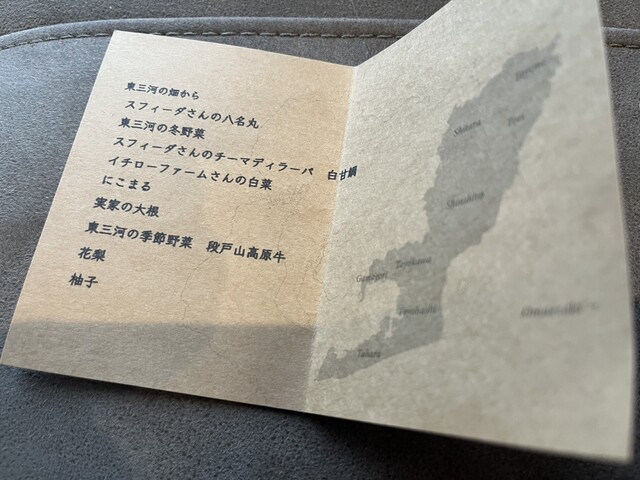 東三河の畑から
スフィーダさんの八名丸
東三河の冬野菜
スフィーダさんのチーマディラーパ　白甘鯛
イチローファームさんの白菜
にこまる
実家の大根
東三河の季節野菜　段戸山高原牛
花梨
柚子
Toyone
Shitara
Toei
Shinshiro
Gamagori
Toyokawa
Toyohashi
Tahara